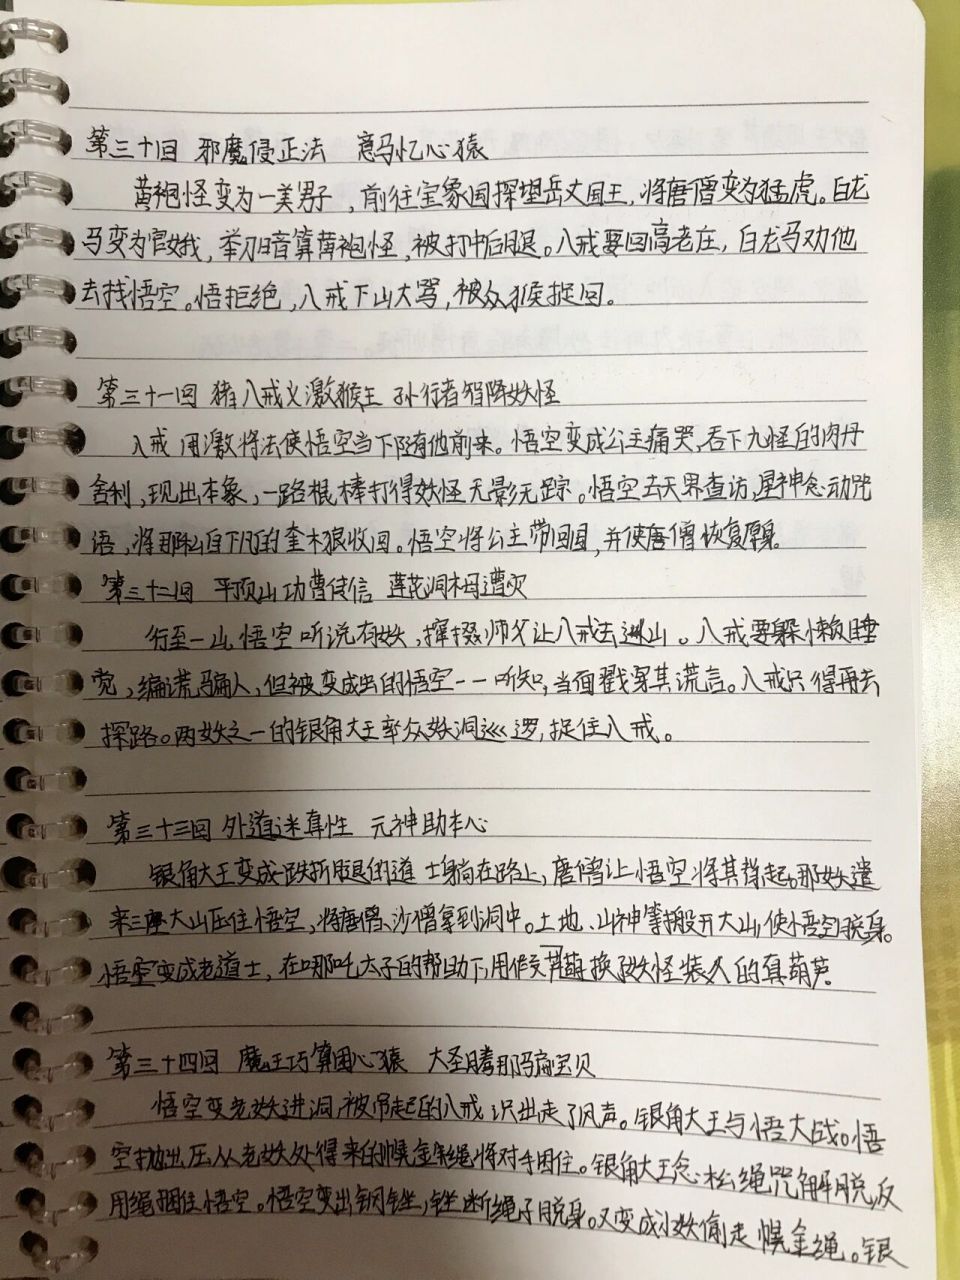 第三十回 邪魔侵正法 意马忆心猿
黄袍怪变为一美男子，前往宝象国探望岳丈国王，将唐僧变为猛虎。白龙
马变为宫娥，举刀暗算黄袍怪，被打中后腿。八戒要回高老庄，白龙马劝他
去找悟空。悟拒绝，八戒下山大骂，被众猴捉回。
第三十一回 猪八戒义激猴王 孙行者智降妖怪
八戒用激将法使悟空当下随他前来。悟空变成公主痛哭，吞下九怪的肉丹
舍利，现出本象，一路棍棒打得妖怪无影无踪。悟空去天界查访，星神念动咒
语，将那私自下凡的奎木狼收回。悟空将公主带回国，并使唐僧恢复原身。
第三十二回 平顶山功曹传信 莲花洞木母遭灾
行至一山，悟空听说有妖，撺掇师父让八戒去巡山。八戒要躲懒睡
觉，编谎骗人，但被变成虫的悟空一一听知，当面戳穿其谎言。八戒只得再去
探路。两妖之一的银角大王率众妖洞巡逻，捉住八戒。
第三十三回 外道迷真性 元神助本心
银角大王变成跌折腿的道士躺在路上，唐僧让悟空将其背起。那妖遣
来三座大山压住悟空，将唐僧、沙僧拿到洞中。土地、山神等搬开大山，使悟空脱身。
悟空变成老道士，在哪吒太子的帮助下，用假葫芦换了妖怪装人的真葫芦。
第三十四回 魔王巧算困心猿 大圣腾那骗宝贝
悟空变老妖进洞，被吊起的八戒识出走了风声。银角大王与悟大战。悟
空抛出压从老妖处得来的幌金绳将对手困住。银角大王念松绳咒解脱，反
用绳捆住悟空。悟空变出钢锉，锉断绳子脱身。又变成小妖偷走幌金绳。银